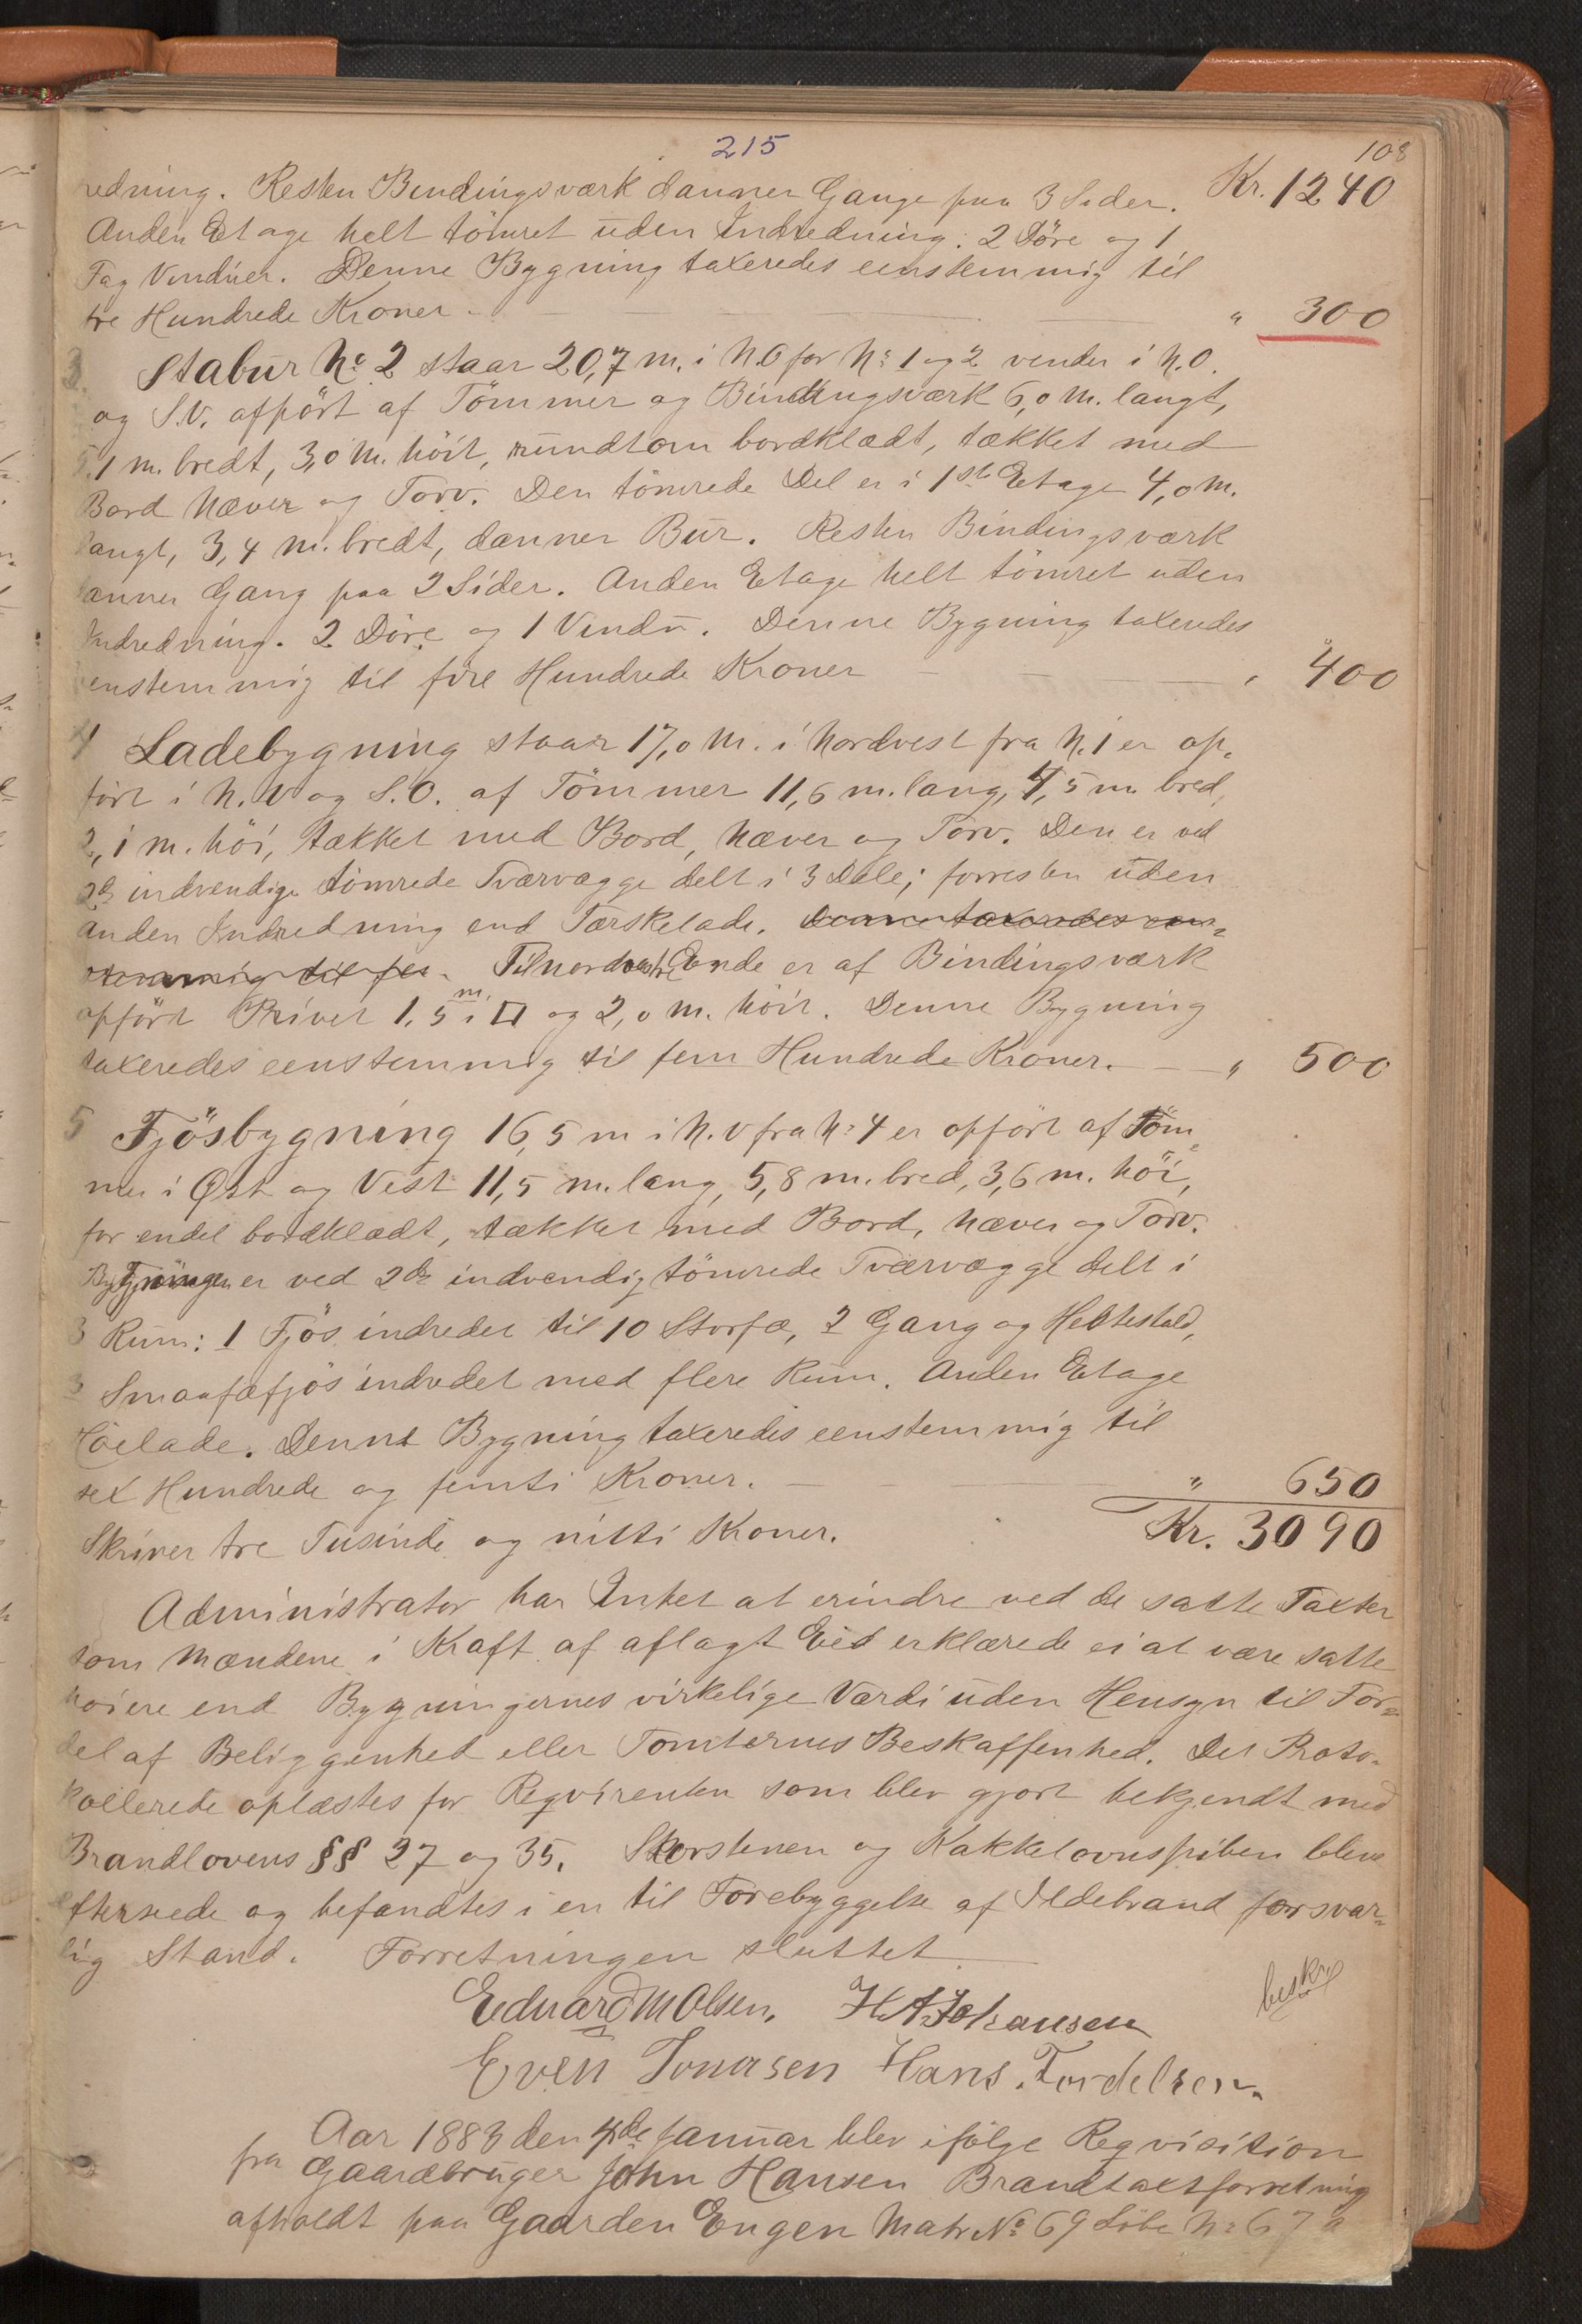 215
108
redning. Resten Bindingsværk danner Gange paa 3 Sider. Kr. 1240
Anden Etage helt tömret uden Indredning. 2 Döre og 1
Fag Vinduer. Denne Bygning taxeredes eenstemmig til
tre Hundrede Kroner — " 300
3. Stabur No 2 staar 20,7 m. i N.O for No 1 og 2 vender i N.O.
og S.V. opfört af Tömmer og Bindingsværk 6,0 m. langt,
5,1 m. bredt, 3,0 m. höit, rundtom bordklædt, tækket med
Bord Næver og Torv. Den tömrede Del er i 1ste Etage 4,0 m.
langt, 3,4 m. bredt, danner Bur. Resten Bindingsværk
danner Gang paa 2 Sider. Anden Etage helt tömret uden
Indredning. 2 Döre og 1 Vindu. Denne Bygning taxeredes
eenstemmig til fire Hundrede Kroner — " 400
4 Ladebygning staar 17,0 m. i Nordvest fra N. 1 er op-
fört i N.V og S.O. af Tömmer 11,6 m. lang, 4,5 m bred,
2,1 m. höi, tækket med Bord, Næver og Torv. Den er ved
2de indvendige tömrede Tværvægge delt i 3 Dele; forresten uden
anden Indredning end Tærskelade. Denne taxeredes een-
stemmig til fem. Til nordvestre Ende er af Bindingsværk
opfört Privet 1,5 m i □ og 2,0 m. höit. Denne Bygning
taxeredes eenstemmig til fem Hundrede Kroner. — " 500
5 Fjösbygning 16,5 m i N.V fra No 4 er opfört af Töm-
mer i Øst og Vest 11,5 m. lang, 5,8 m. bred, 3,6 m. höi,
for endel bordklædt, tækket med Bord, Næver og Torv.
Bygningen er ved 2de indvendig tömrede Tværvægge delt i
3 Rum: 1 Fjös indredet til 10 Storfæ, 2 Gang og Hestestald,
3 Smaafæfjös indredet med flere Rum. Anden Etage
Höelade. Denne Bygning taxeredes eenstemmig til
sex Hundrede og femti Kroner. — " 650
Skriver tre Tusinde og nitti Kroner. Kr. 3090
Administrator har Intet at erindre ved de satte Taxter
som Mændene i Kraft af aflagt Eed erklærede ei at være satte
höiere end Bygningernes virkelige Værdi uden Hensyn til For-
del af Beliggenhed eller Tomternes Beskaffenhed. Det Proto-
kollerede oplæstes for Reqvirenten som blev gjort bekjendt med
Brandlovens §§ 27 og 35. Skorstenen og Kakkelovnspiben bleve
efterseede og befandtes i en til Forebyggelse af Ildebrand forsvar-
lig Stand. Forretningen sluttet
Edvard M Olsen. H. A. Johansen
beskr
Even Jonasen Hans. Tordelsen.
Aar 1883 den 4de Januar blev ifölge Reqvisition
fra Gaardbruger John Hansen Brandtaxtforretning
afholdt paa Gaarden Engen Matr No 69 Löbe No 67 a